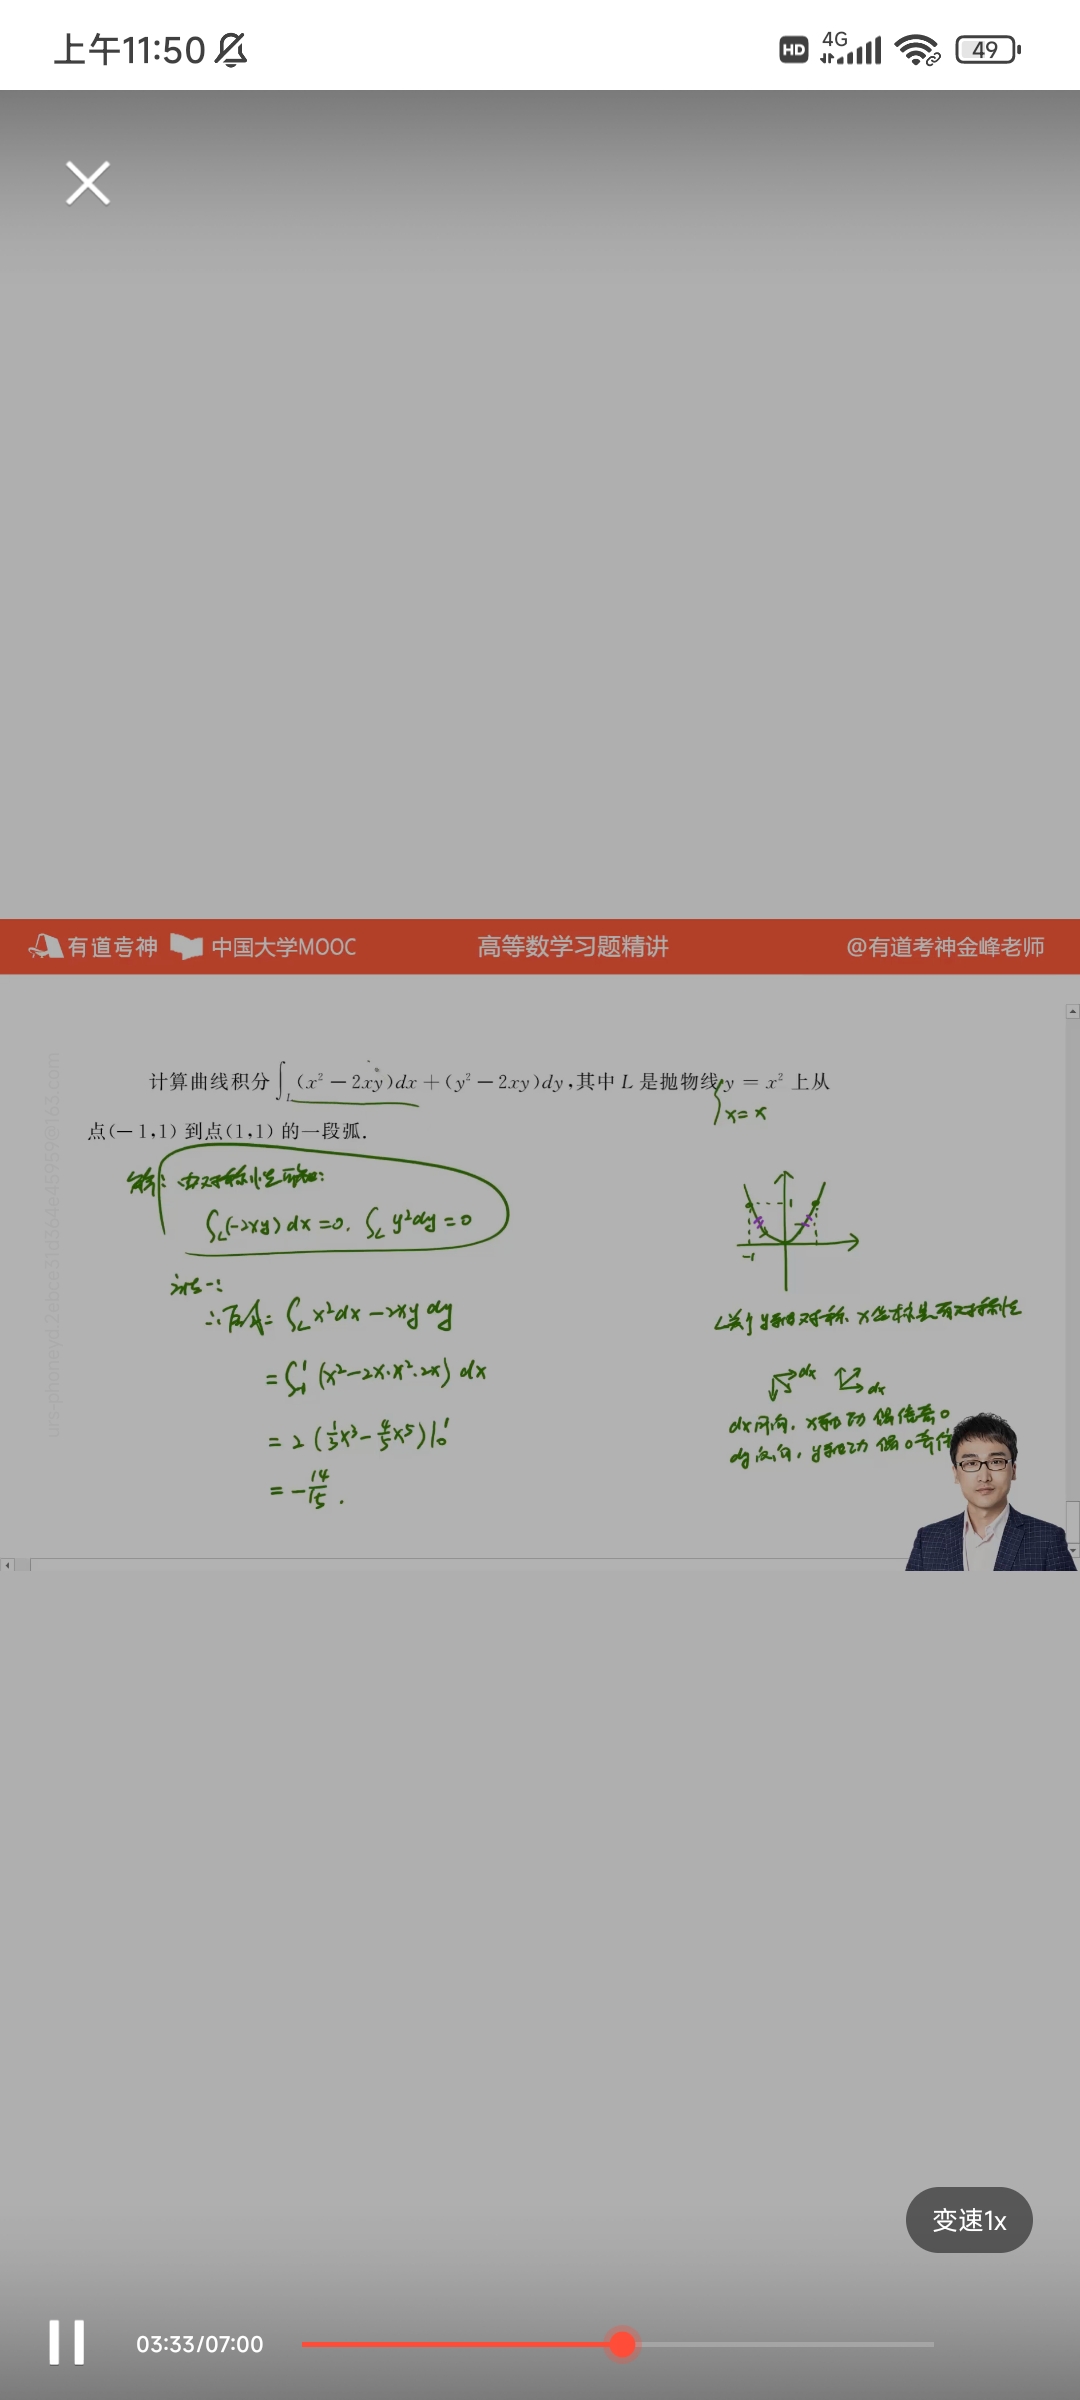 上午11:50 HD 4G 49
有道考神 中国大学MOOC 高等数学习题精讲 @有道考神金峰老师
计算曲线积分∫_L (x² − 2xy)dx + (y² − 2xy)dy,其中 L 是抛物线 y = x² 上从
x = x
点(−1,1) 到点(1,1) 的一段弧.
解: 由对称性可知:
∫_L (−2xy) dx = 0. ∫_L y²dy = 0
法一:
∴ 原式 = ∫_L x²dx − 2xy dy
= ∫_{-1}^{1} (x² − 2x·x²·2x) dx
= 2 (1/3 x³ − 4/5 x⁵)|₀¹
= − 14/15 .
1
−1
L关于y轴对称. x坐标具有对称性
dx dx
dx同向, x轴功 偶倍奇0
dy反向, y轴功 偶0奇倍
变速1x
03:33/07:00